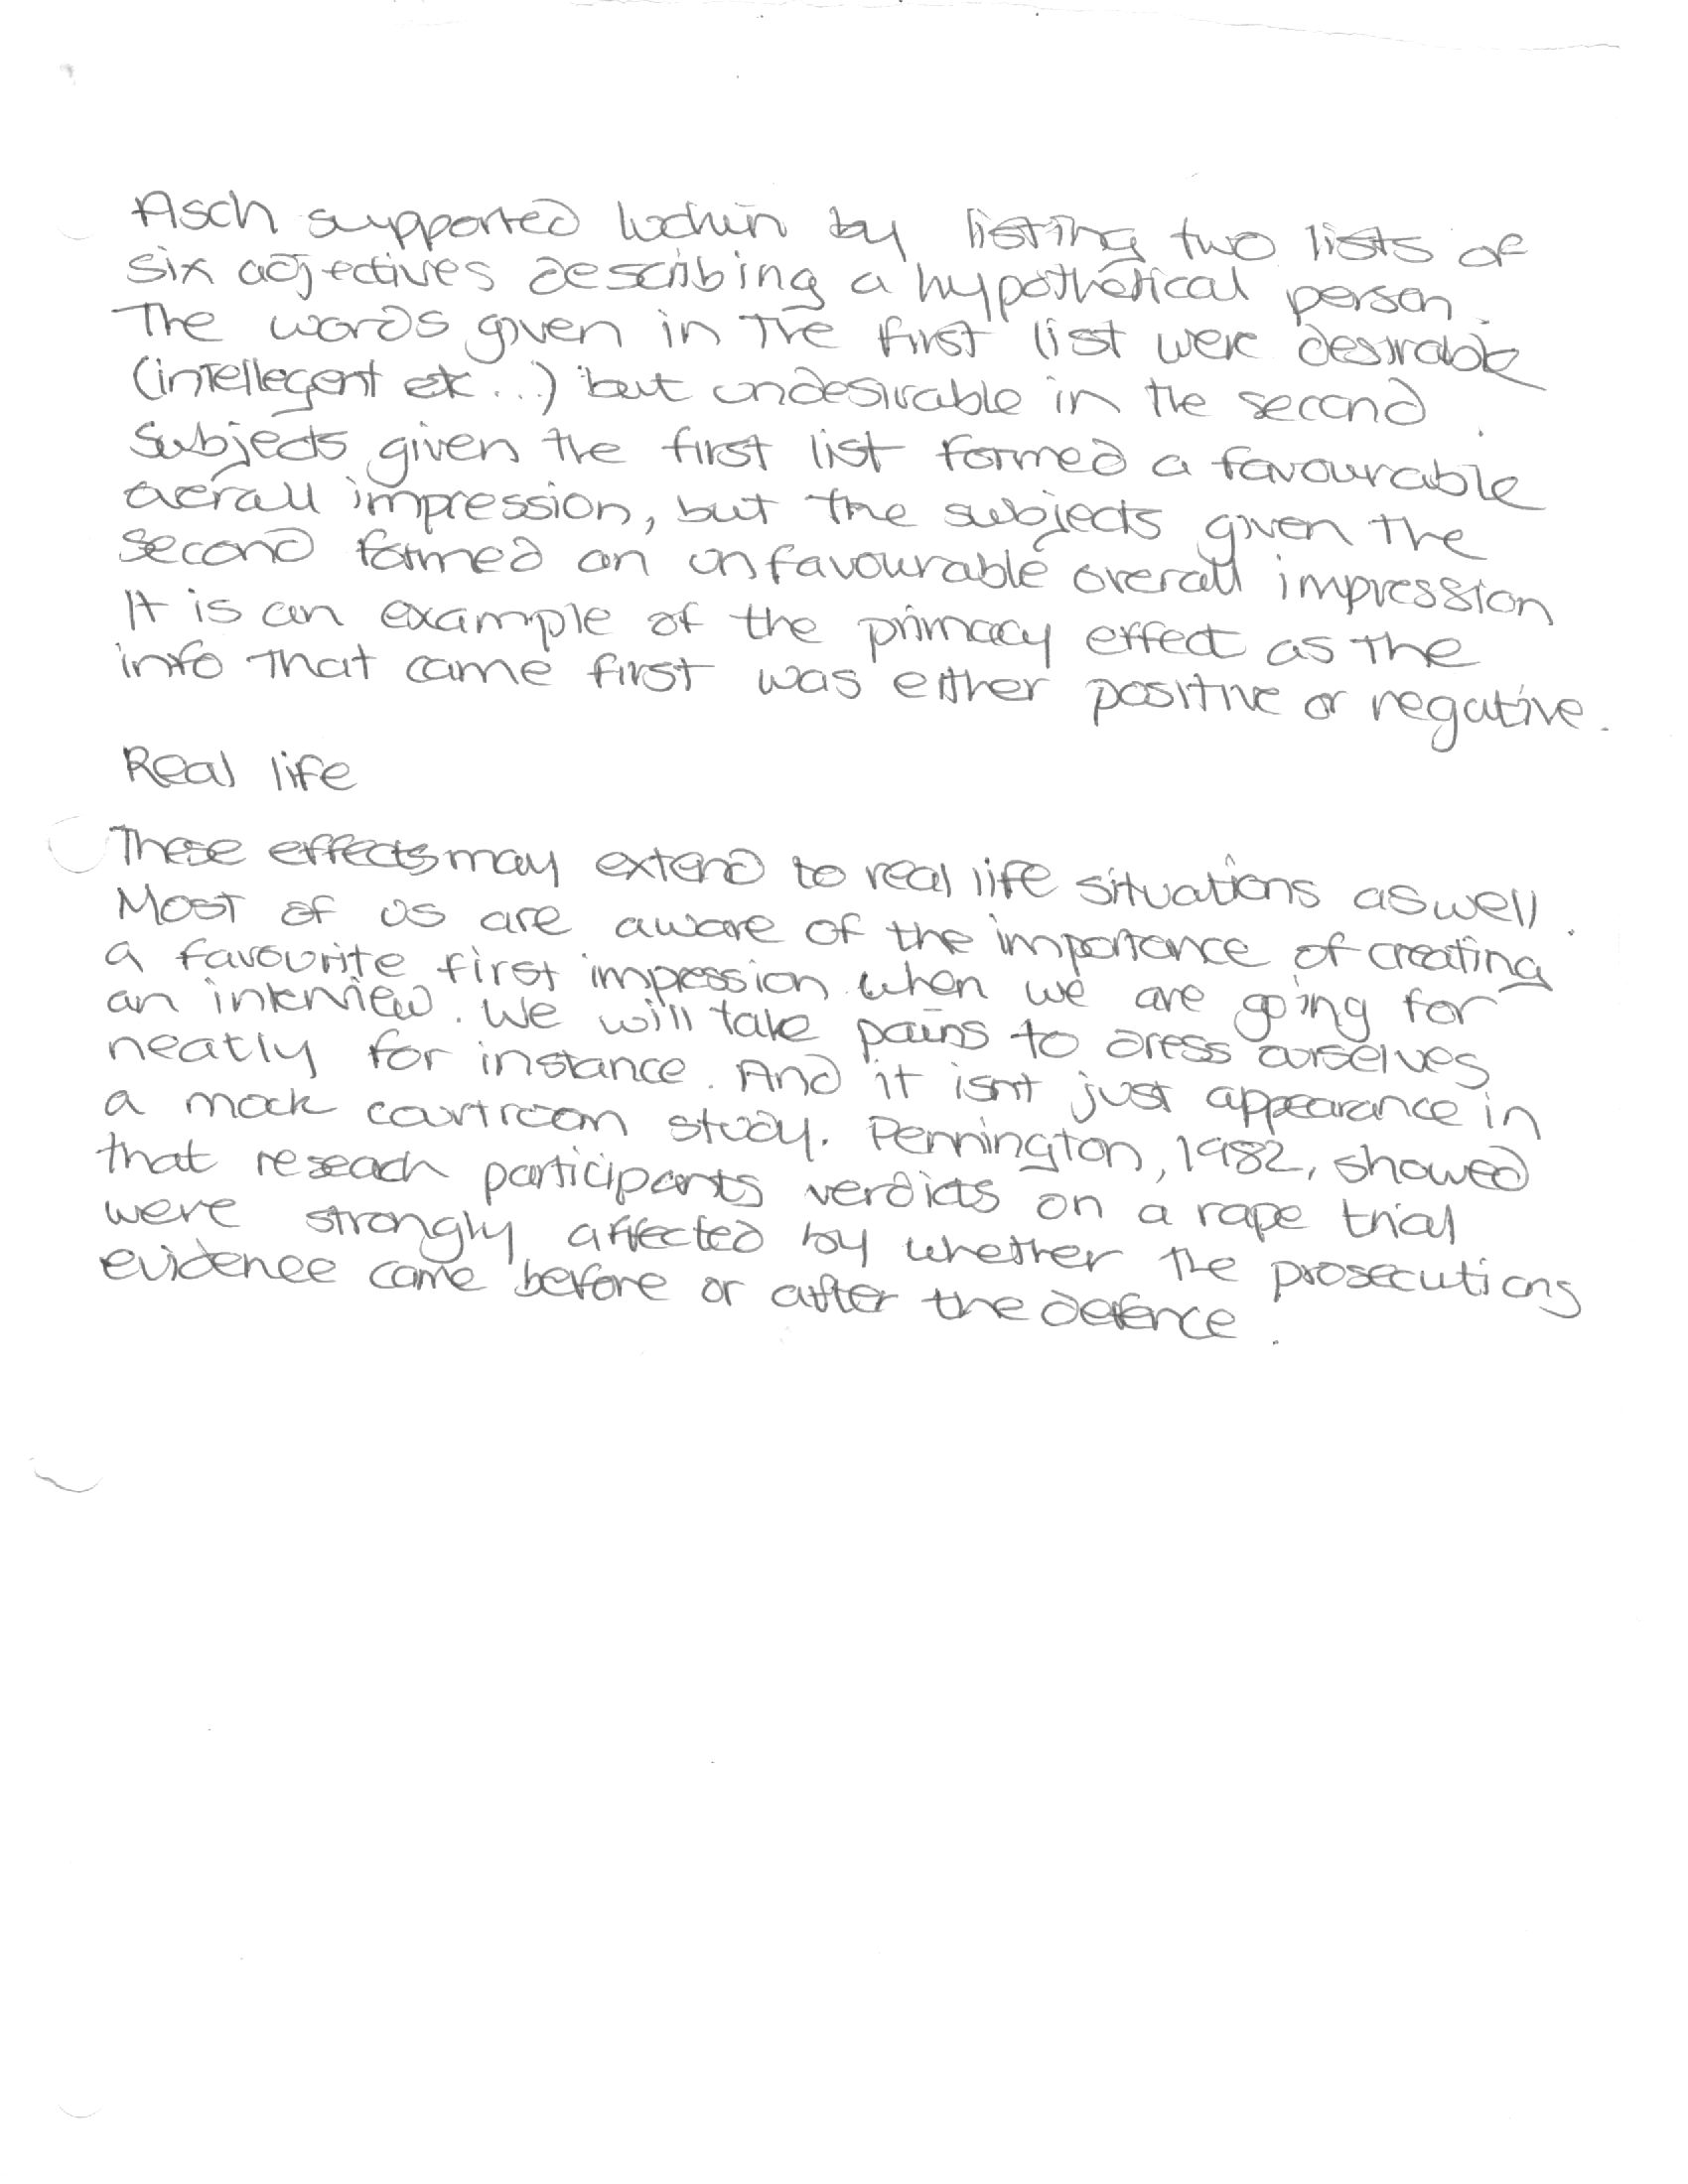 Asch supported luchin by listing two lists of
six adjectives describing a hypothetical person.
The words given in the first list were desirable
(intellegent etc...) but undesirable in the second.
Subjects given the first list formed a favourable
overall impression, but the subjects given the
second formed an unfavourable overall impression
It is an example of the primacy effect as the
info that came first was either positive or negative.
Real life
These effects may extend to real life situations aswell.
Most of us are aware of the importance of creating
a favourite first impression when we are going for
an interview. We will take pains to dress ourselves
neatly for instance. And it isnt just appearance in
a mock courtroom study. Pennington, 1982, showed
that reseach participants verdicts on a rape trial
were strongly affected by whether the prosecutions
evidence came before or after the defence.